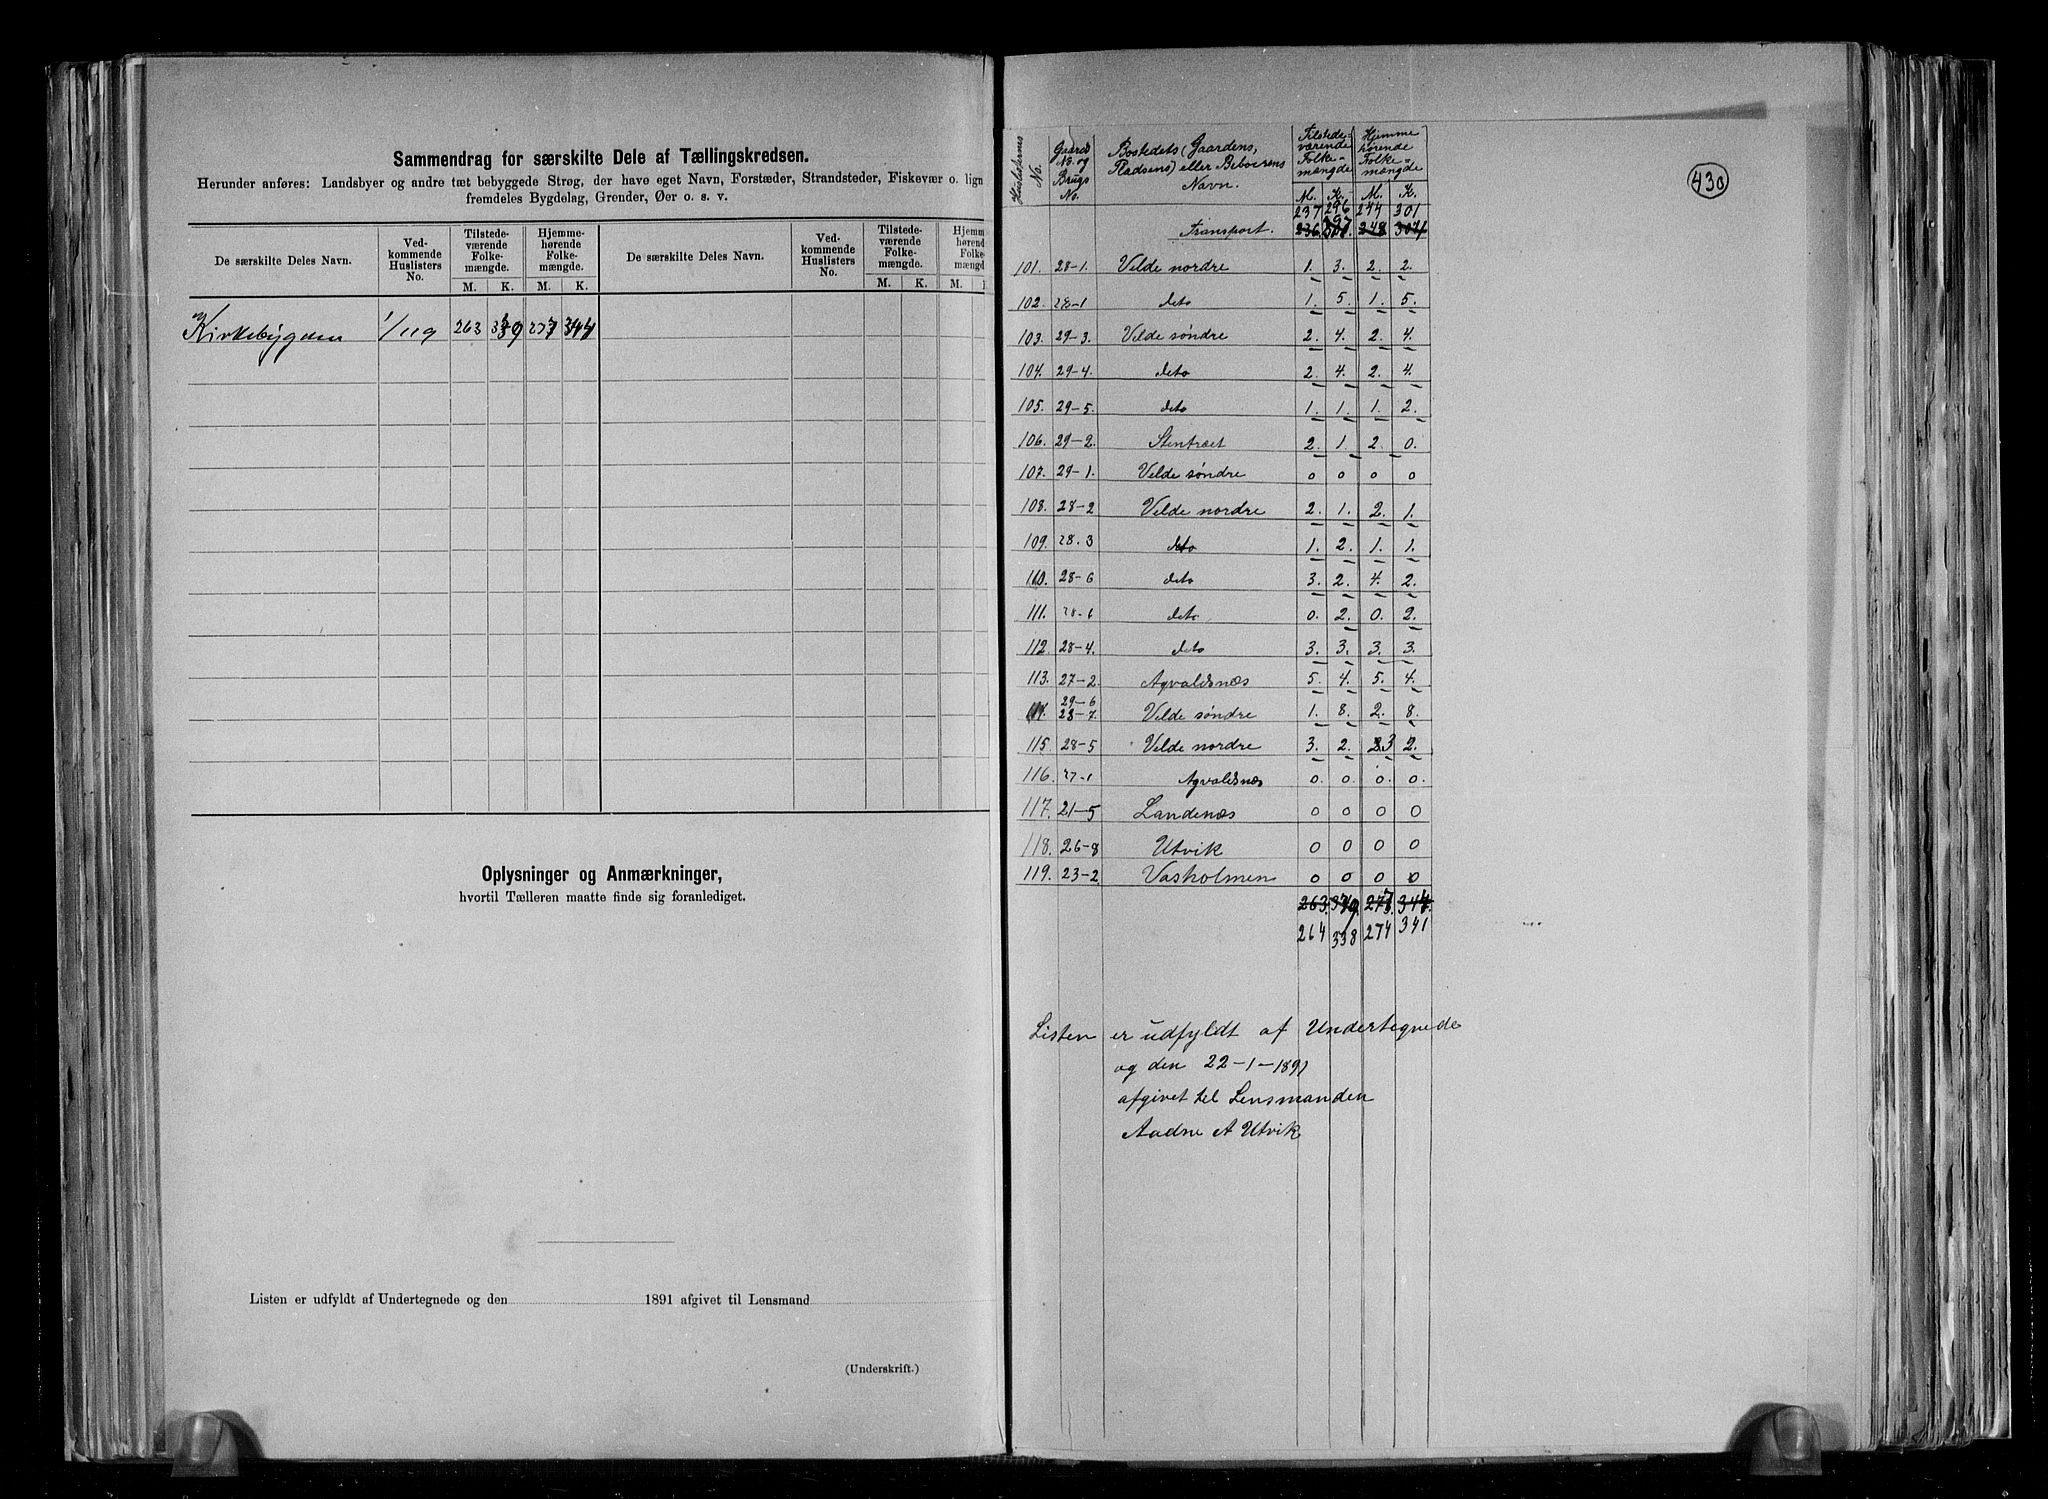 Sammendrag for særskilte Dele af Tællingskredsen.
Herunder anføres: Landsbyer og andre tæt bebyggede Strøg, der have eget Navn, Forstæder, Strandsteder, Fiskevær o. lign
fremdeles Bygdelag, Grender, Øer o. s. v.
De særskilte Deles Navn. Ved-kommende Huslisters No. Tilstede-værende Folke-mængde. Hjemme-hørende Folke-mængde. De særskilte Deles Navn. Ved-kommende Huslisters No. Tilstede-værende Folke-mængde. Hjemm hørend Folke mængd
M. K. M. K. M. K. M.
Kirkebygden 1/119 263 344
Oplysninger og Anmærkninger,
hvortil Tælleren maatte finde sig foranlediget.
Listen er udfyldt af Undertegnede og den 1891 afgivet til Lensmand
(Underskrift.)
430
Huslisternes No. Gaards No. og Brugs No. Bostedets (Gaardens, Pladsens) eller Beboerens Navn. Tilstede-værende Folke-mængde Hjemme hørende Folke-mængde
M. K. M. K.
237 296 244 301
Transport. 236
101. 28-1. Velde nordre 1. 3. 2. 2.
102. 28-1 deto 1. 5. 1. 5.
103. 29-3. Velde søndre 2. 4. 2. 4.
104. 29-4. deto 2. 4. 2. 4.
105. 29-5. deto 1. 1. 1. 2.
106. 29-2. Stentræet 2. 1. 2. 0.
107. 29-1. Velde søndre 0 0 0 0
108. 28-2 Velde nordre 2. 1. 2. 1.
109. 28.3 deto 1. 2. 1. 1.
110. 28-6 deto 3. 2. 4. 2.
111. 28-6 deto 0. 2. 0. 2.
112 28-4. deto 3. 3. 3. 3.
113. 27-2. Agvaldsnæs 5. 4. 5. 4.
29-6
114. 28-7. Velde søndre 1. 8. 2. 8.
115. 28-5 Velde nordre 3. 2. 3 2.
116. 27-1 Agvaldsnæs 0. 0. 0. 0.
117. 21-5 Landenæs 0 0 0 0
118. 26-8 Utvik 0 0 0 0
119. 23-2 Vasholmen 0 0 0 0
263.
264 338 274 341
Listen er udfyldt af Undertegnede
og den 22-1-1891
afgivet til Lensmanden
Aadne A Utvik